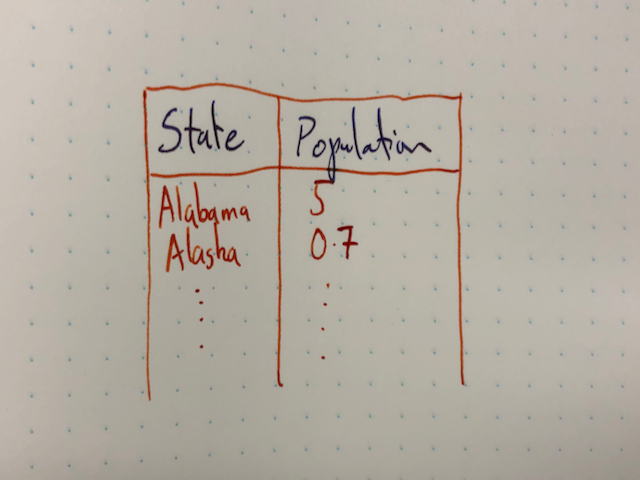 State Population
Alabama 5
Alaska 0.7